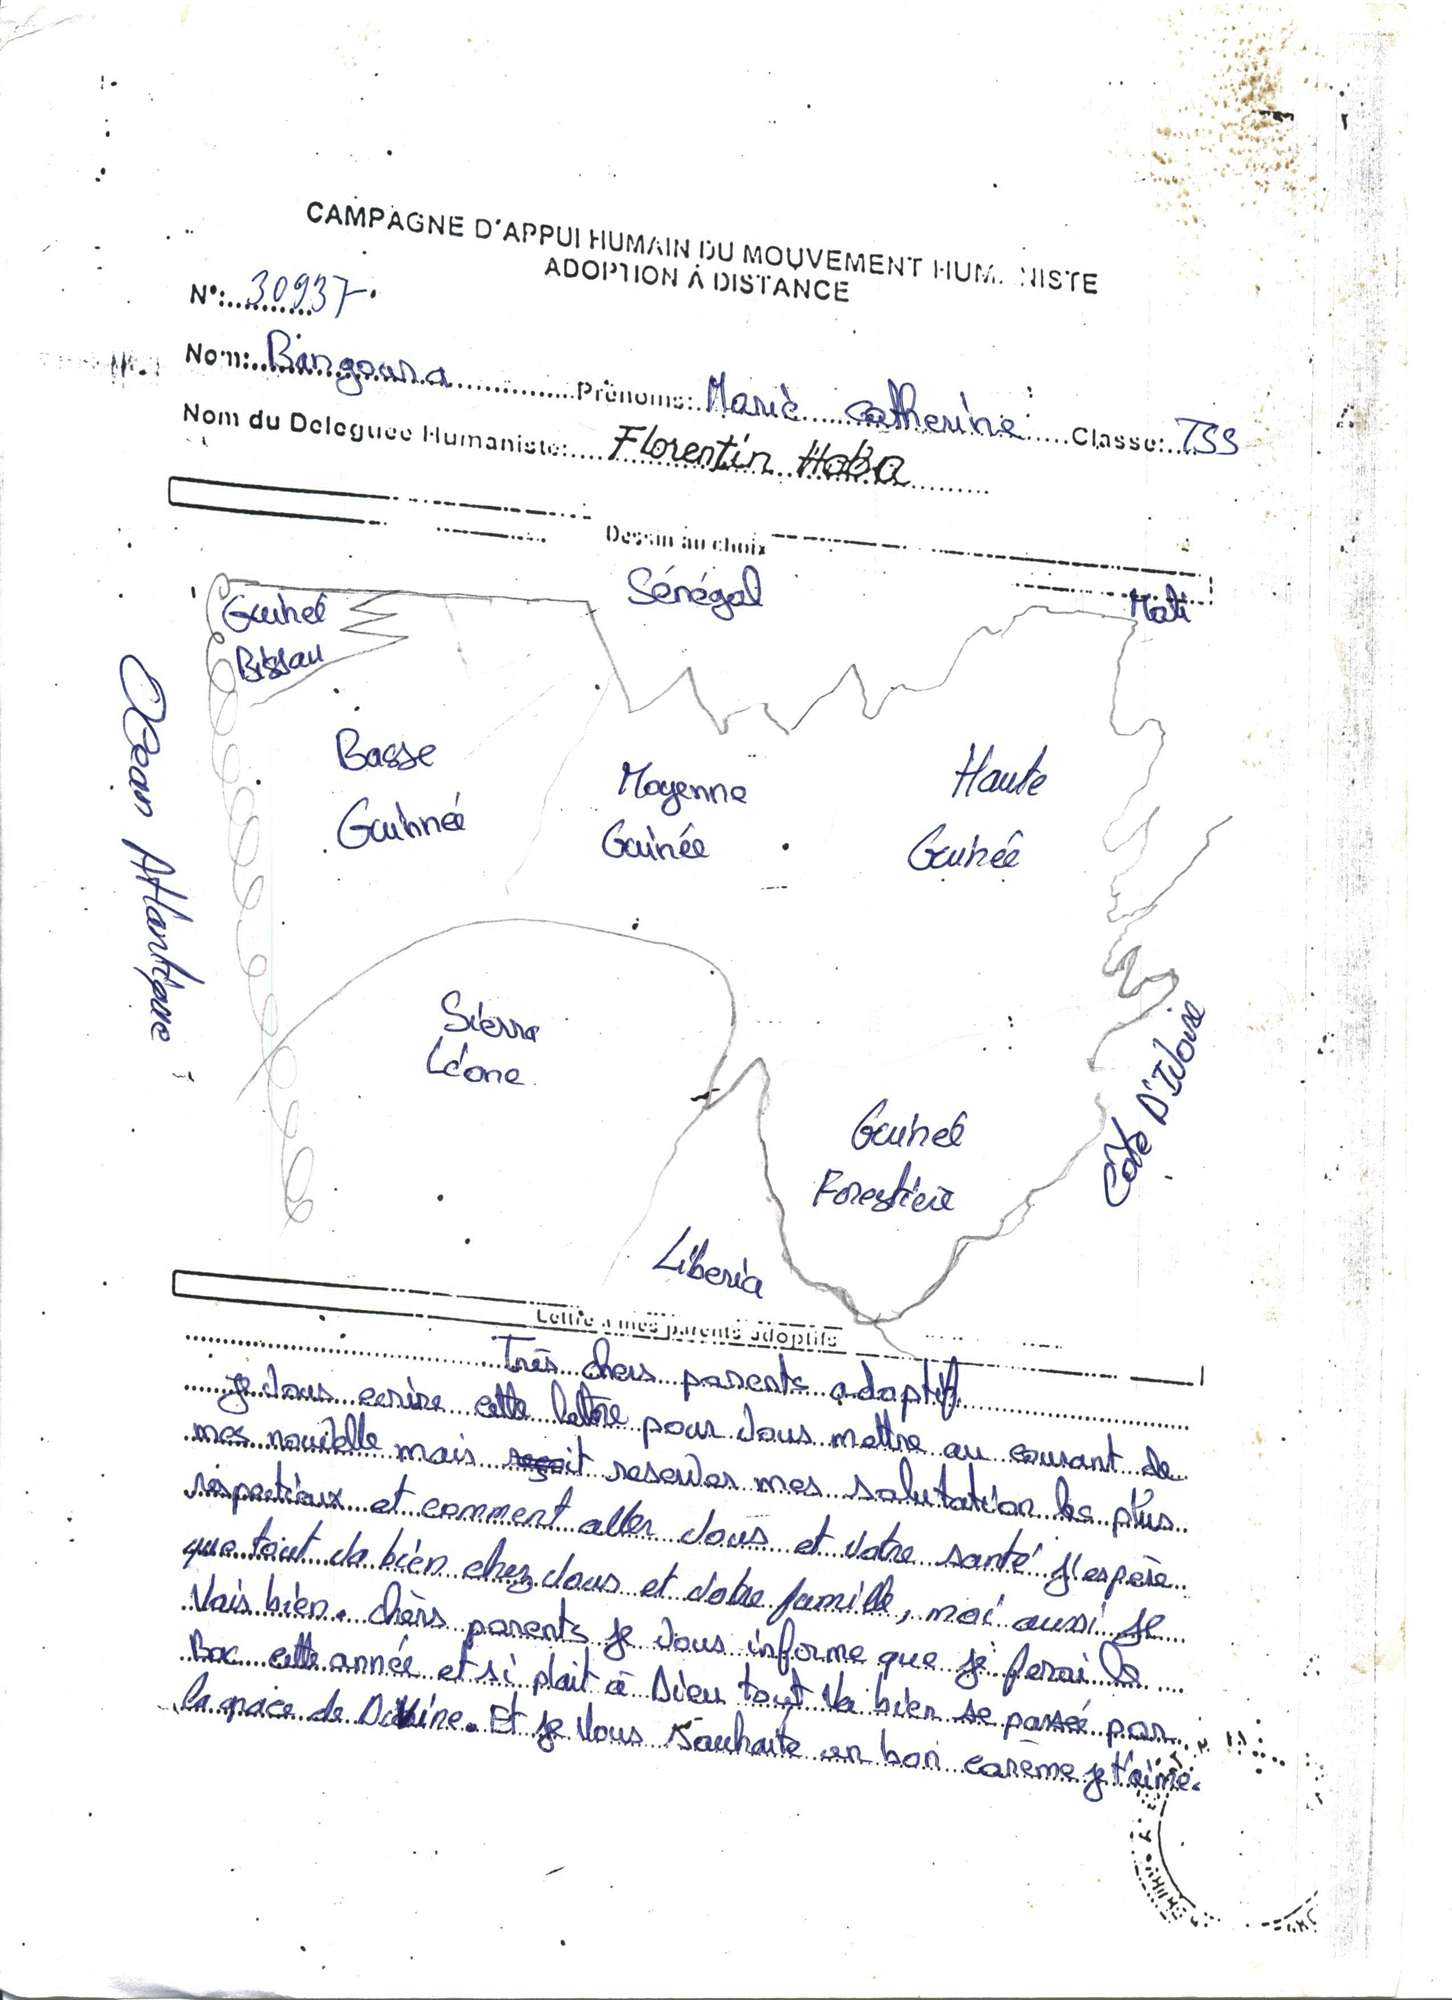 CAMPAGNE D'APPUI HUMAIN DU MOUVEMENT HUMANISTE
ADOPTION À DISTANCE
N°: 30937.
Nom: Bangoura Prénoms: Marie Catherine Classe: TSS
Nom du Deleguée Humaniste: Florentin Haba
Dessin au choix
Sénégal
Mali
Guineé
Bissau
Océan Atlantique
Basse
Guinnée
Moyenne
Guinée
Haute
Guinée
Sierra
Léone
Guineé
Forestière
Côte D'Ivoire
Liberia
Lettre à mes parents adoptifs
Très chers parents adoptif
je vous ecrire cette lettre pour vous mettre au courant de
mes nouvelle mais reservés mes salutation les plus
respectieux et comment aller vous et votre santé j'espère
que tout va bien chez vous et votre famille, moi aussi je
vais bien. chèrs parents je vous informe que je ferai le
Bac cette année et si plait à Dieu tout va bien se passé par
la grace de Divine. Et je vous souhaite un bon carême je t'aime.